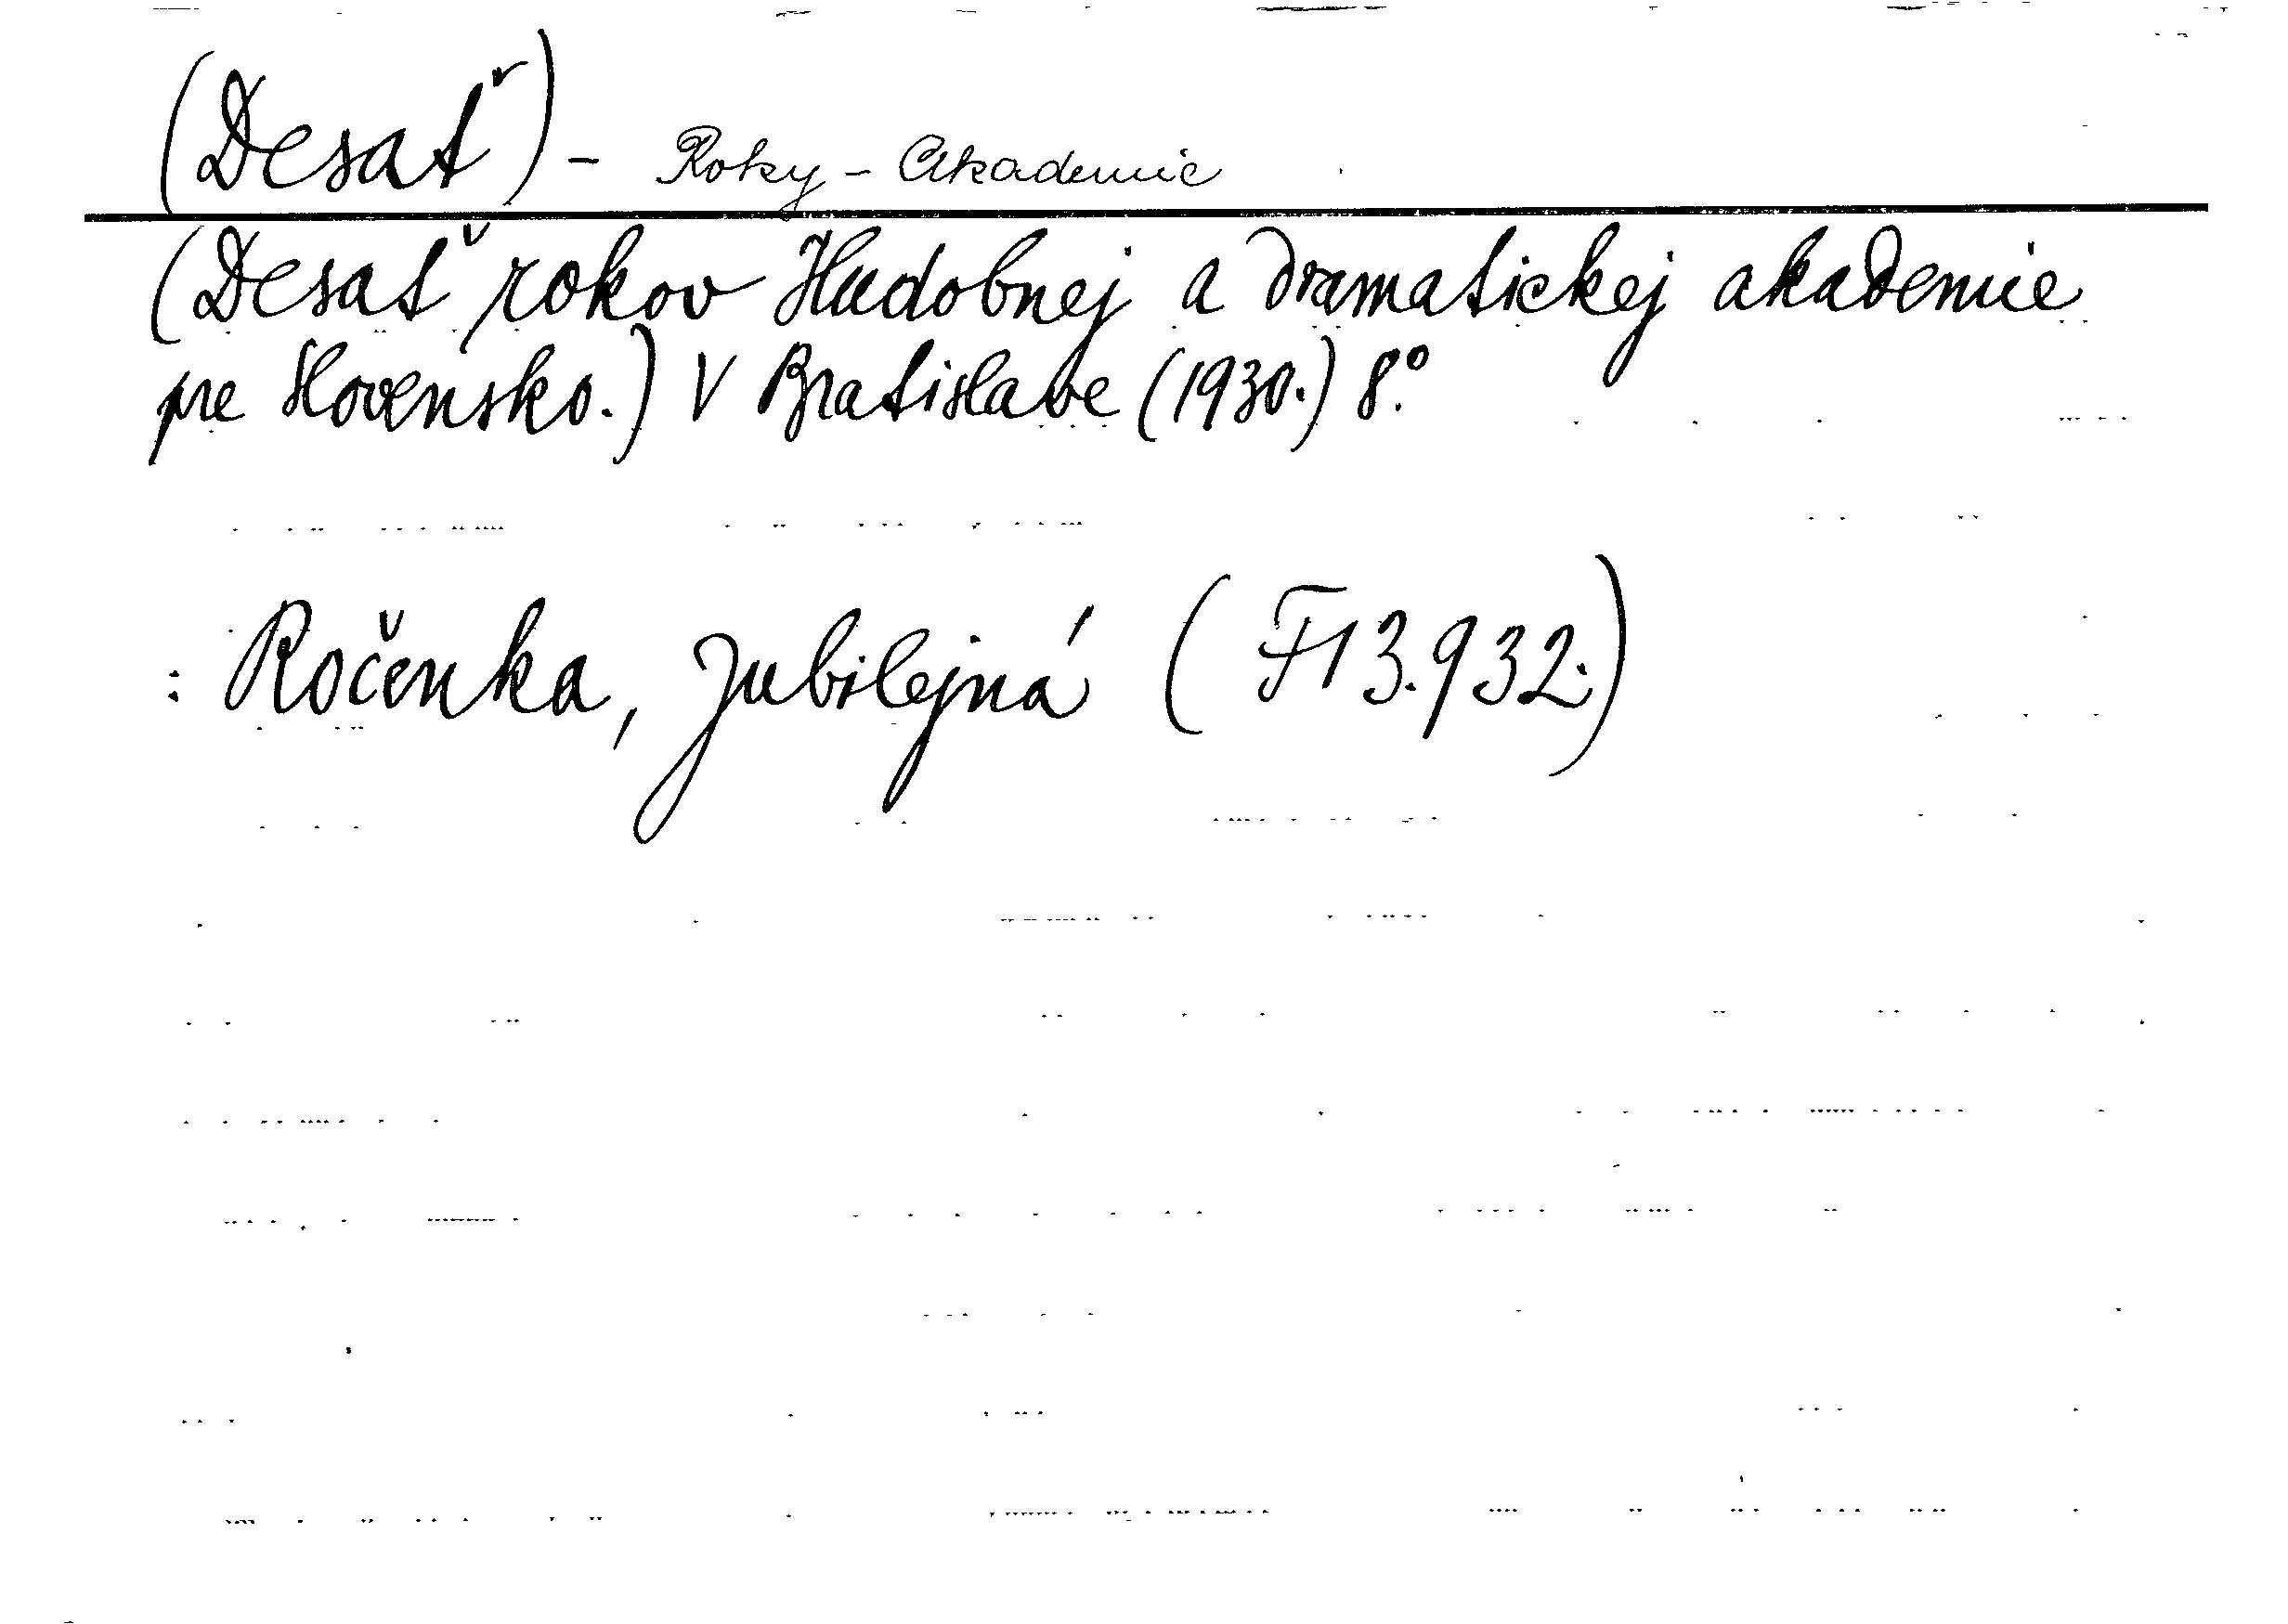 (Desať) - Roky - Akademie
(Desať rokov Hudobnej a dramatickej akademie
pre Slovensko.) V Bratislave (1930.) 8.°
: Ročenka, Jubilejná (F 13.932.)